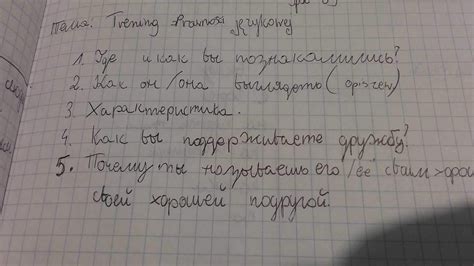 Тема. Trening Prawności Językowej
1. Где и как вы познакомились?
2. Как он/она выглядеть (
3. Характеристика.
4. Как вы поддерживаете дружбу?
5. Почему ты называешь его/её своим хоро
своей хорошей подругой.